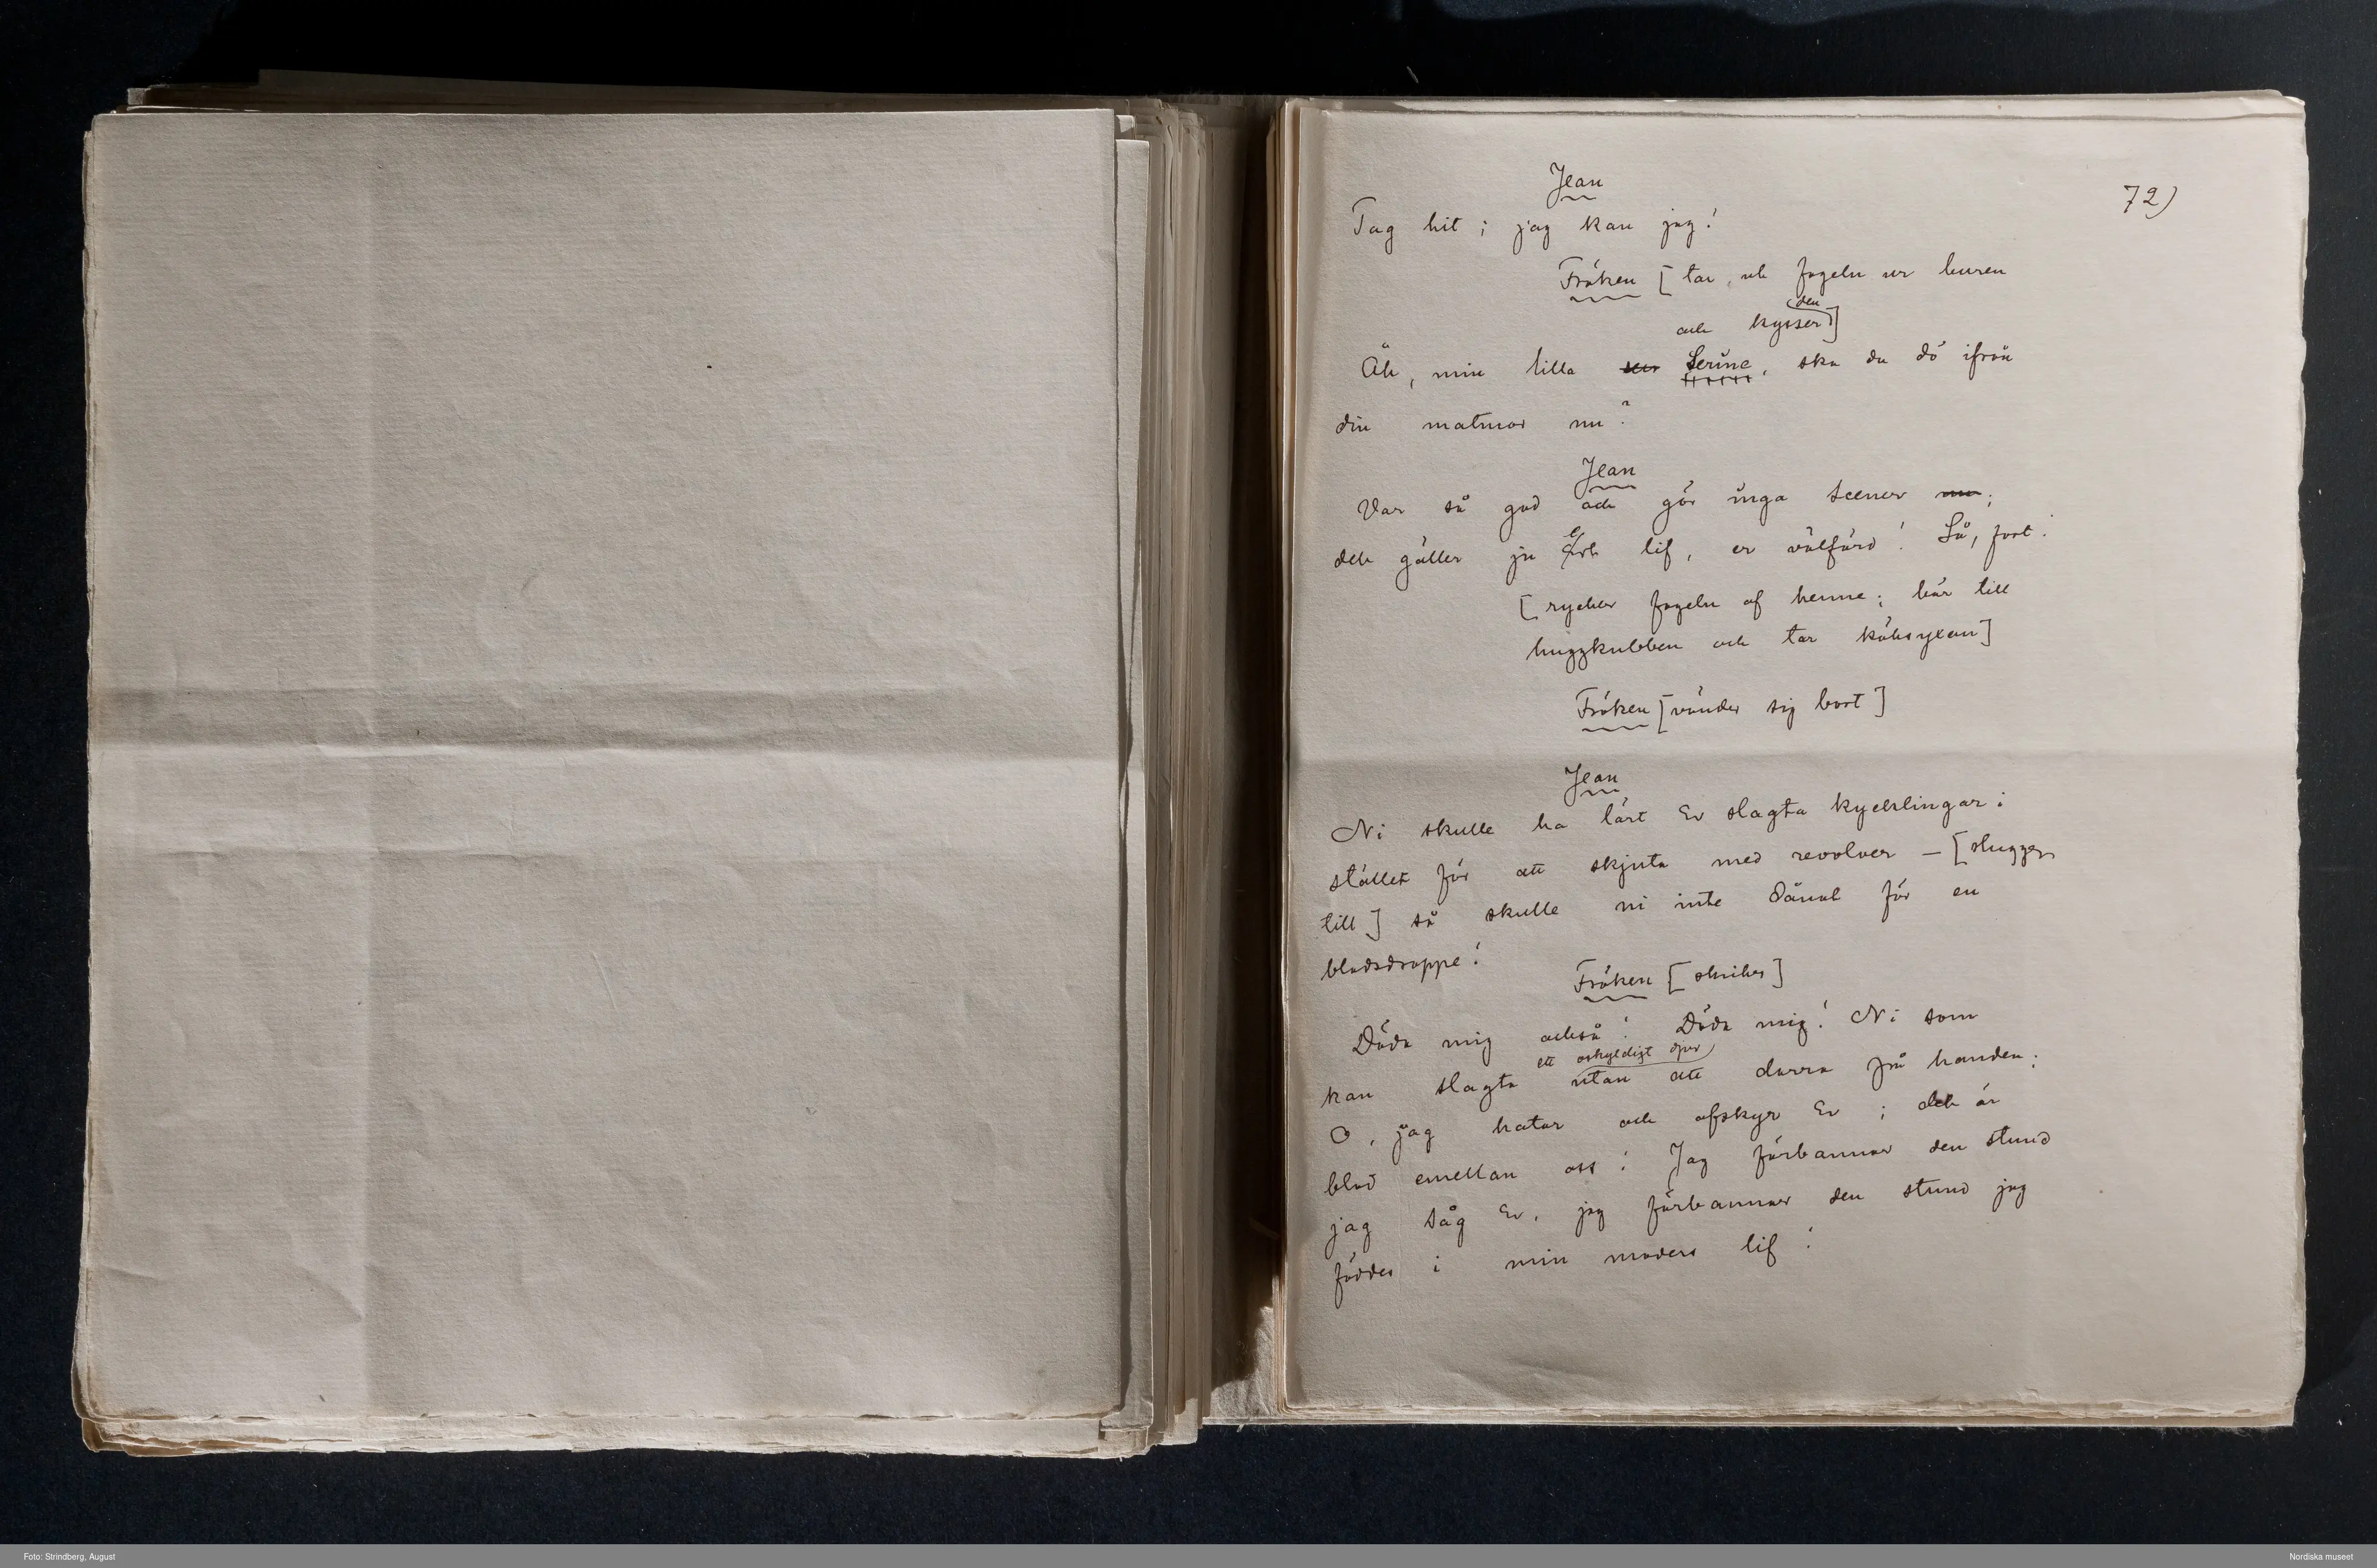 72)
Jean
Tag hit; jag kan jag!
Fröken [tar ut fogeln ur buren
den
och kysser]
Åh, min lilla Serine, ska du dö ifrån
din matmor nu?
Jean
Var så god och gör inga scener;
det gäller ju ert lif, er välfärd! Så, fort!
[rycker fogeln af henne; bär till
huggkubben och tar köksyxan]
Fröken [vänder sig bort]
Jean
Ni skulle ha lärt Er slagta kycklingar i
stället för att skjuta med revolver – [hugger
till] så skulle ni inte dånat för en
blodsdroppe!
Fröken [skriker]
Döda mig också! Döda mig! Ni som
ett oskyldigt djur
kan slagta utan att darra på handen.
O, jag hatar och afskyr Er; det är
blod emellan oss! Jag förbannar den stund
jag såg Er, jag förbannar den stund jag
föddes i min moders lif!
Foto: Strindberg, August
Nordiska museet